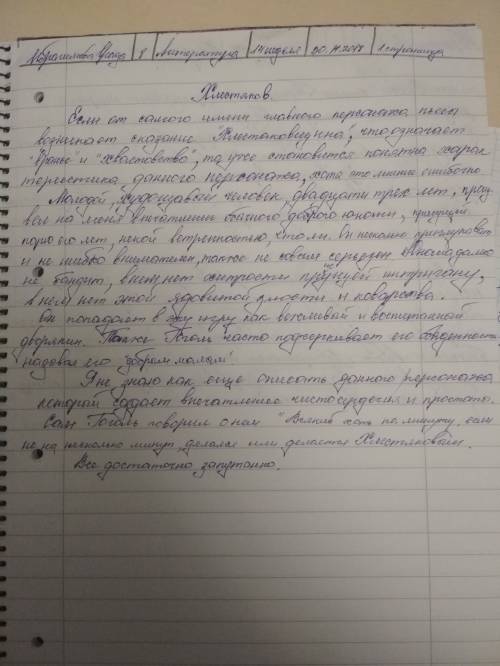 8 Литература 14 неделя 1 страница
Хлестаков.
Если от самого имени главного персонажа пьесы
возникает сказание "Хлестаковщина", что означает
"Вранье" и "хвастовство", то уже становится понятна харак
теристика данного персонажа, хотя это мнение ошибочно
Молодой, худощавый человек, двадцати трех лет, произ
вел на меня впечатление обычного доброго юноши,
его лет, некой ветренностью, что ли. Он немного приглуповат
и не шибко внимателен, также не совсем серьезен
не бандит, в нем нет хитрости интригану,
в нем нет этой ядовитой злости и коварства.
Он попадает в эту игру как вежливый и воспитанный
дворянин. Также Гоголь часто подчеркивает его
называя его "добрым малым"
Я не знаю как еще описать данного персонажа
который создает впечатление чистосердечия и простоты.
Сам Гоголь говорил о нем "Всякий хоть на минуту, если
не на несколько минут, делался или делается Хлестаковым.
Все достаточно запутанно.